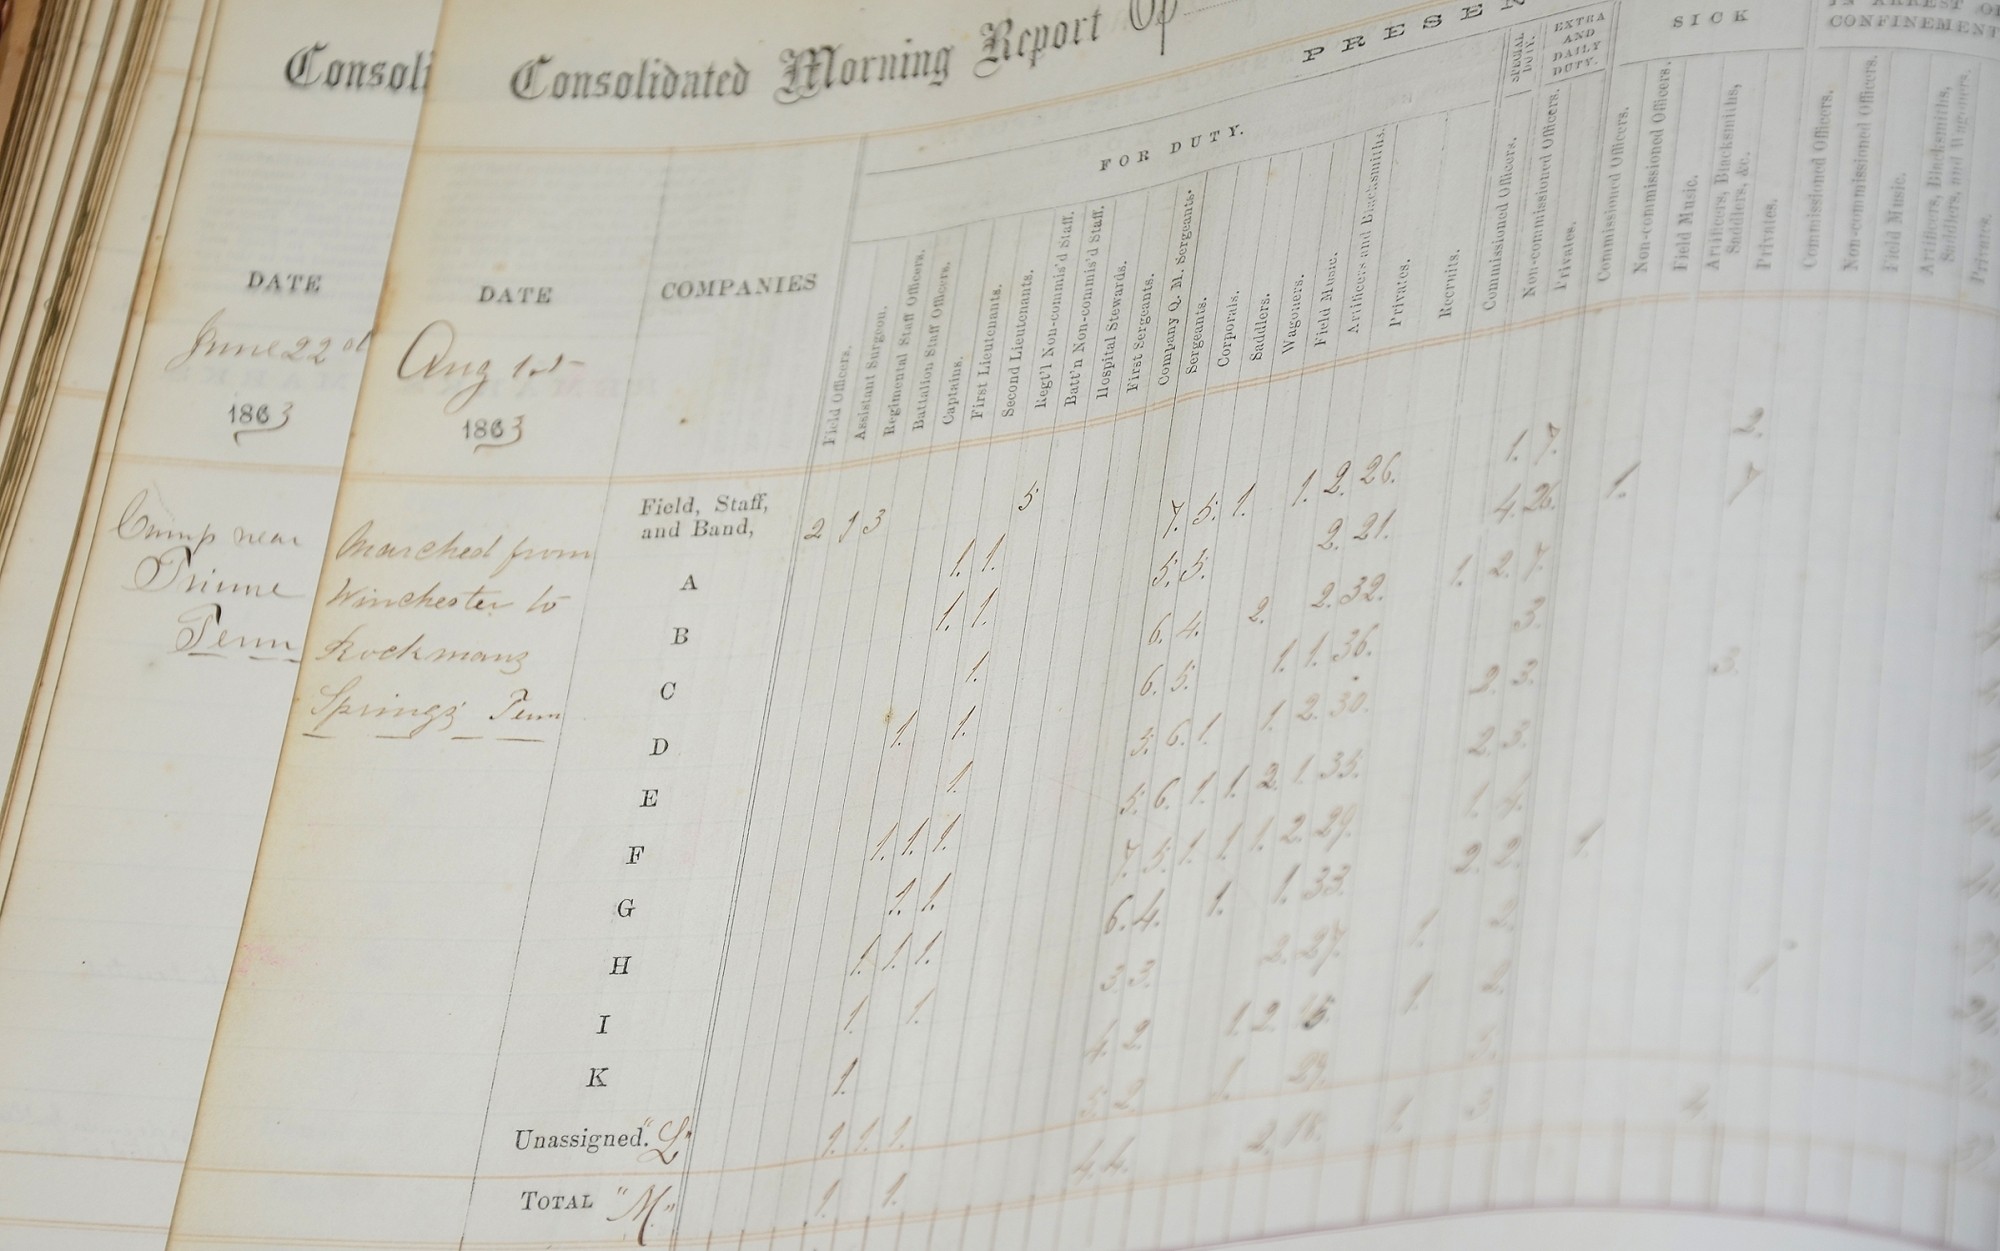 Consoli
DATE
June 22nd
1863
Camp near
Prime
Tenn
Consolidated Morning Report Of
DATE
Aug 1st
1863
Marched from
Winchester to
Rockmans
Springs Tenn
COMPANIES
PRESEN
FOR DUTY.
SPECIAL DUTY.
EXTRA AND DAILY DUTY.
SICK
IN ARREST OR
CONFINEMENT
Field Officers.
Assistant Surgeon.
Regimental Staff Officers.
Battalion Staff Officers.
Captains.
First Lieutenants.
Second Lieutenants.
Regt'l Non-commis'd Staff.
Batt'n Non-commis'd Staff.
Hospital Stewards.
First Sergeants.
Company Q. M. Sergeants.
Sergeants.
Corporals.
Saddlers.
Wagoners.
Field Music.
Artificers and Blacksmiths.
Privates.
Recruits.
Commissioned Officers.
Non-commissioned Officers.
Privates.
Commissioned Officers.
Non-commissioned Officers.
Field Music.
Artificers, Blacksmiths,
Saddlers, &c.
Privates.
Commissioned Officers.
Non-commissioned Officers.
Field Music.
Artificers, Blacksmiths,
Saddlers, and Wagoners.
Privates.
Field, Staff,
and Band, 2 1 3 5
A 1. 1. 7. 5. 1. 1. 2. 26. 1. 7. 2.
B 1. 1. 5. 5. 2. 21. 4. 26. 1. 7
C 1. 6. 4. 2. 2. 32. 1. 2. 7.
D 1. 1. 6. 5. 1. 1. 36. 3.
E 1. 5. 6. 1. 1. 2. 30. 2. 3. 3.
F 1. 1. 1. 5. 6. 1. 1. 2. 1. 35. 2. 3.
G 1. 1. 7. 5. 1. 1. 1. 2. 29. 1. 4.
H 1. 1. 1. 6. 4. 1. 1. 33. 2. 2. 1.
I 1. 1. 3. 3. 2. 27. 1. 2.
K 1. 4. 2. 1. 2. 15. 1. 2. 1.
Unassigned. "L" 1. 1. 1. 5. 2. 1. 29.
TOTAL "M" 1. 1. 4. 4. 2. 18. 1. 3.